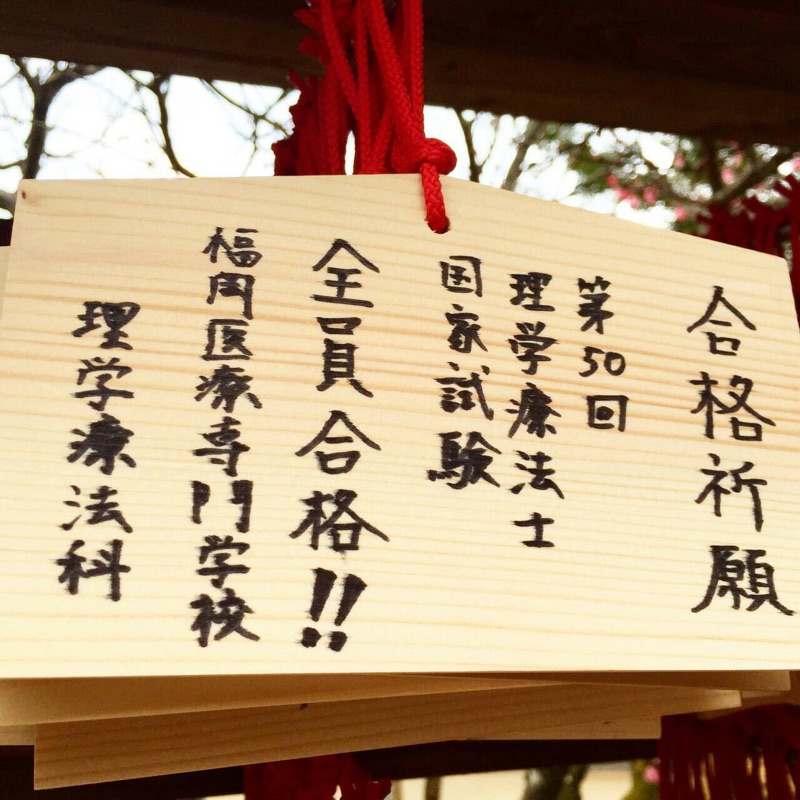 合格祈願
第50回
理学療法士
国家試験
全員合格!!
福岡医療専門学校
理学療法科